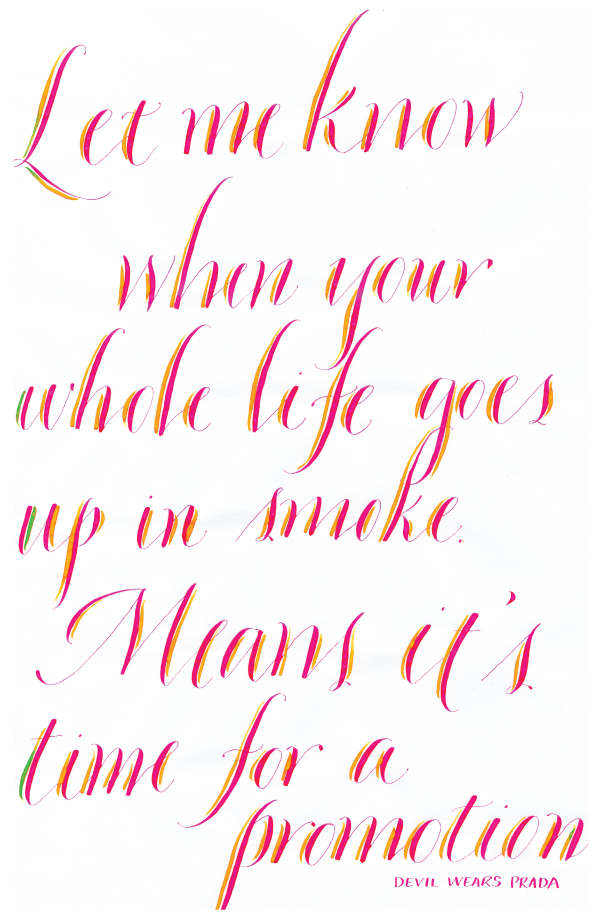 Let me know
when your
whole life goes
up in smoke.
Means it's
time for a
promotion
DEVIL WEARS PRADA